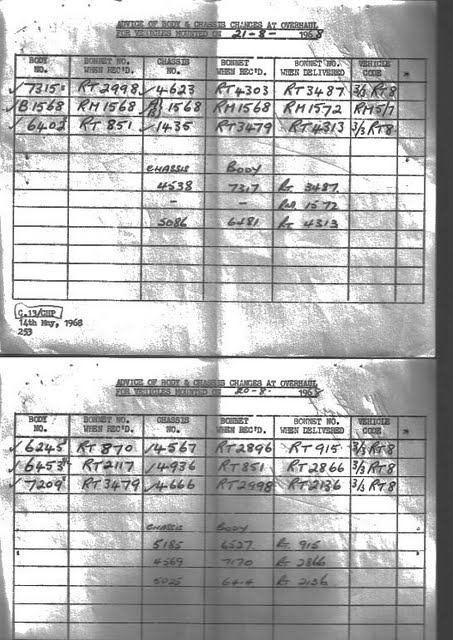 ADVICE OF BODY & CHASSIS CHANGES AT OVERHAUL
FOR VEHICLES MOUNTED ON 21-8- 1968
BODY NO. BONNET NO. WHEN REC'D. CHASSIS NO. BONNET WHEN REC'D. BONNET NO. WHEN DELIVERED VEHICLE CODE *
✓7315 RT 2998 ✓4623 RT 4303 RT 3487 3/3 RT8
✓B1568 RM 1568 1568 RM1568 RM 1572 RM5/7
✓6402 RT 851 ✓1435 RT3479 RT4313 3/3 RT8
CHASSIS BODY
4538 7317 RT 3487
- - RM 1572
5086 6481 RT 4313
C.13/CHP
14th May, 1968
253
ADVICE OF BODY & CHASSIS CHANGES AT OVERHAUL
FOR VEHICLES MOUNTED ON 20-8- 1968
BODY NO. BONNET NO. WHEN REC'D. CHASSIS NO. BONNET WHEN REC'D. BONNET NO. WHEN DELIVERED VEHICLE CODE *
✓6245 RT 870 ✓4567 RT2896 RT 915 3/3 RT8
✓6453 RT2117 ✓4936 RT851 RT 2866 3/3 RT8
✓7209 RT3479 ✓4666 RT2998 RT2136 3/3 RT8
CHASSIS BODY
5185 6527 RT 915
4569 7170 RT 2866
5025 6414 RT 2136